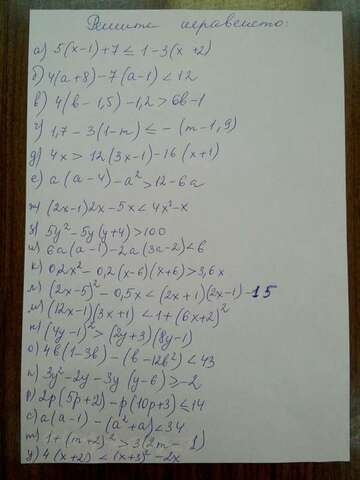 Решите неравенство:
а) 5(x-1)+7 ≤ 1-3(x+2)
б) 4(a+8)-7(a-1)<12
в) 4(b-1,5)-1,2>6b-1
г) 1,7-3(1-m) ≤ -(m-1,9)
д) 4x>12(3x-1)-16(x+1)
е) a(a-4)-a²>12-6a
ж) (2x-1)2x-5x<4x²-x
з) 5y²-5y(y+4)>100
и) 6a(a-1)-2a(3a-2)<6
к) 0,2x²-0,2(x-6)(x+6)>3,6x
л) (2x-5)²-0,5x<(2x+1)(2x-1)-15
м) (12x-1)(3x+1)<1+(6x+2)²
н) (4y-1)²>(2y+3)(8y-1)
о) 4b(1-3b)-(b-12b²)<43
п) 3y²-2y-3y(y-6)≥-2
р) 2p(5p+2)-p(10p+3)≤14
с) a(a-1)-(a²+a)<34
т) 1+(m+2)²>3(2m-1)
у) 4(x+2)<(x+3)²-2x